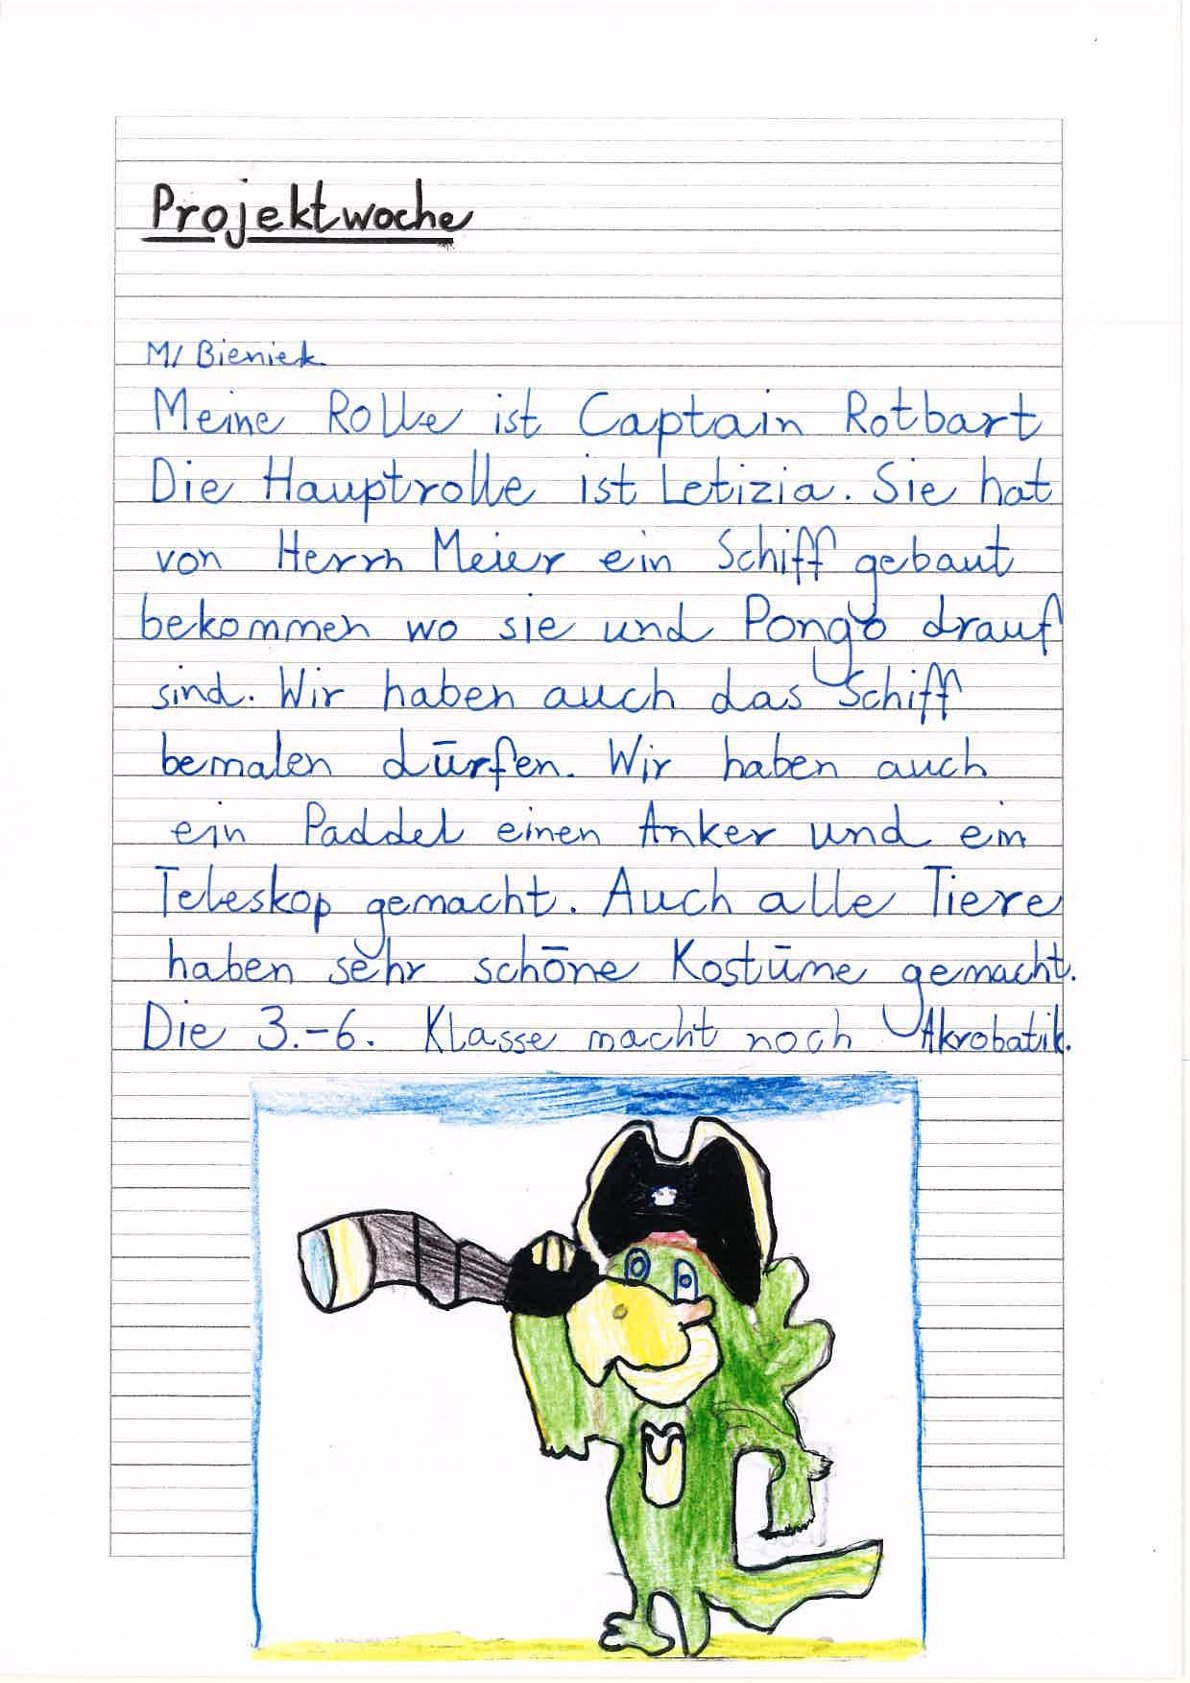 Projektwoche
M/ Bieniek
Meine Rolle ist Captain Rotbart
Die Hauptrolle ist Letizia. Sie hat
von Herrn Meier ein Schiff gebaut
bekommen wo sie und Pongo drauf
sind. Wir haben auch das Schiff
bemalen dürfen. Wir haben auch
ein Paddel einen Anker und ein
Teleskop gemacht. Auch alle Tiere
haben sehr schöne Kostüme gemacht.
Die 3.-6. Klasse macht noch Akrobatik.